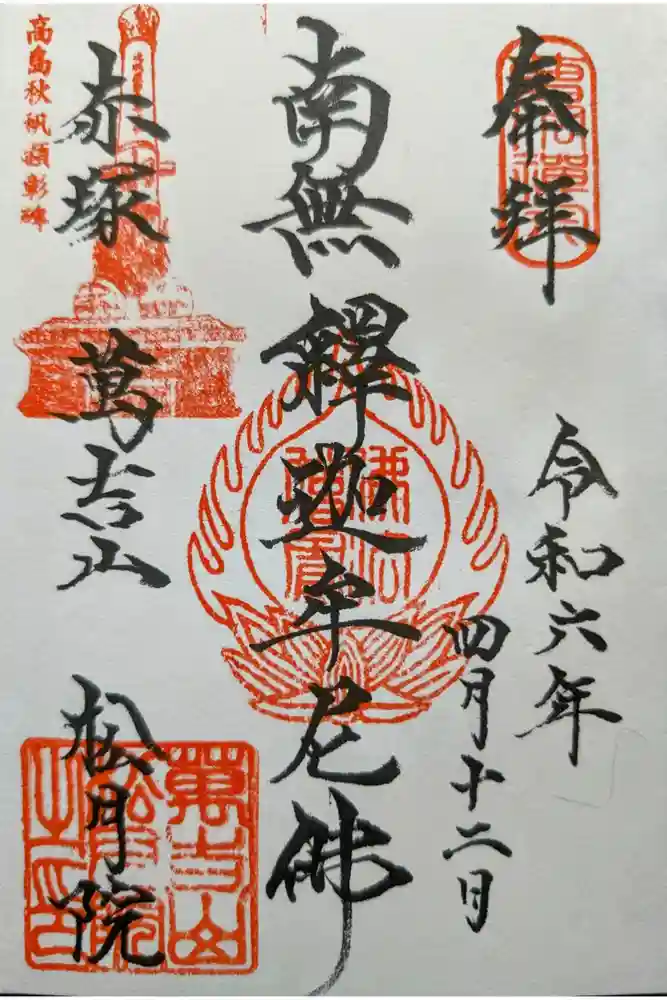 奉拜
令和六年
四月十二日
南無釋迦牟尼佛
赤塚 萬吉山 松月院
高島秋帆顕彰碑
佛法僧寳
萬吉山
松月院
之印